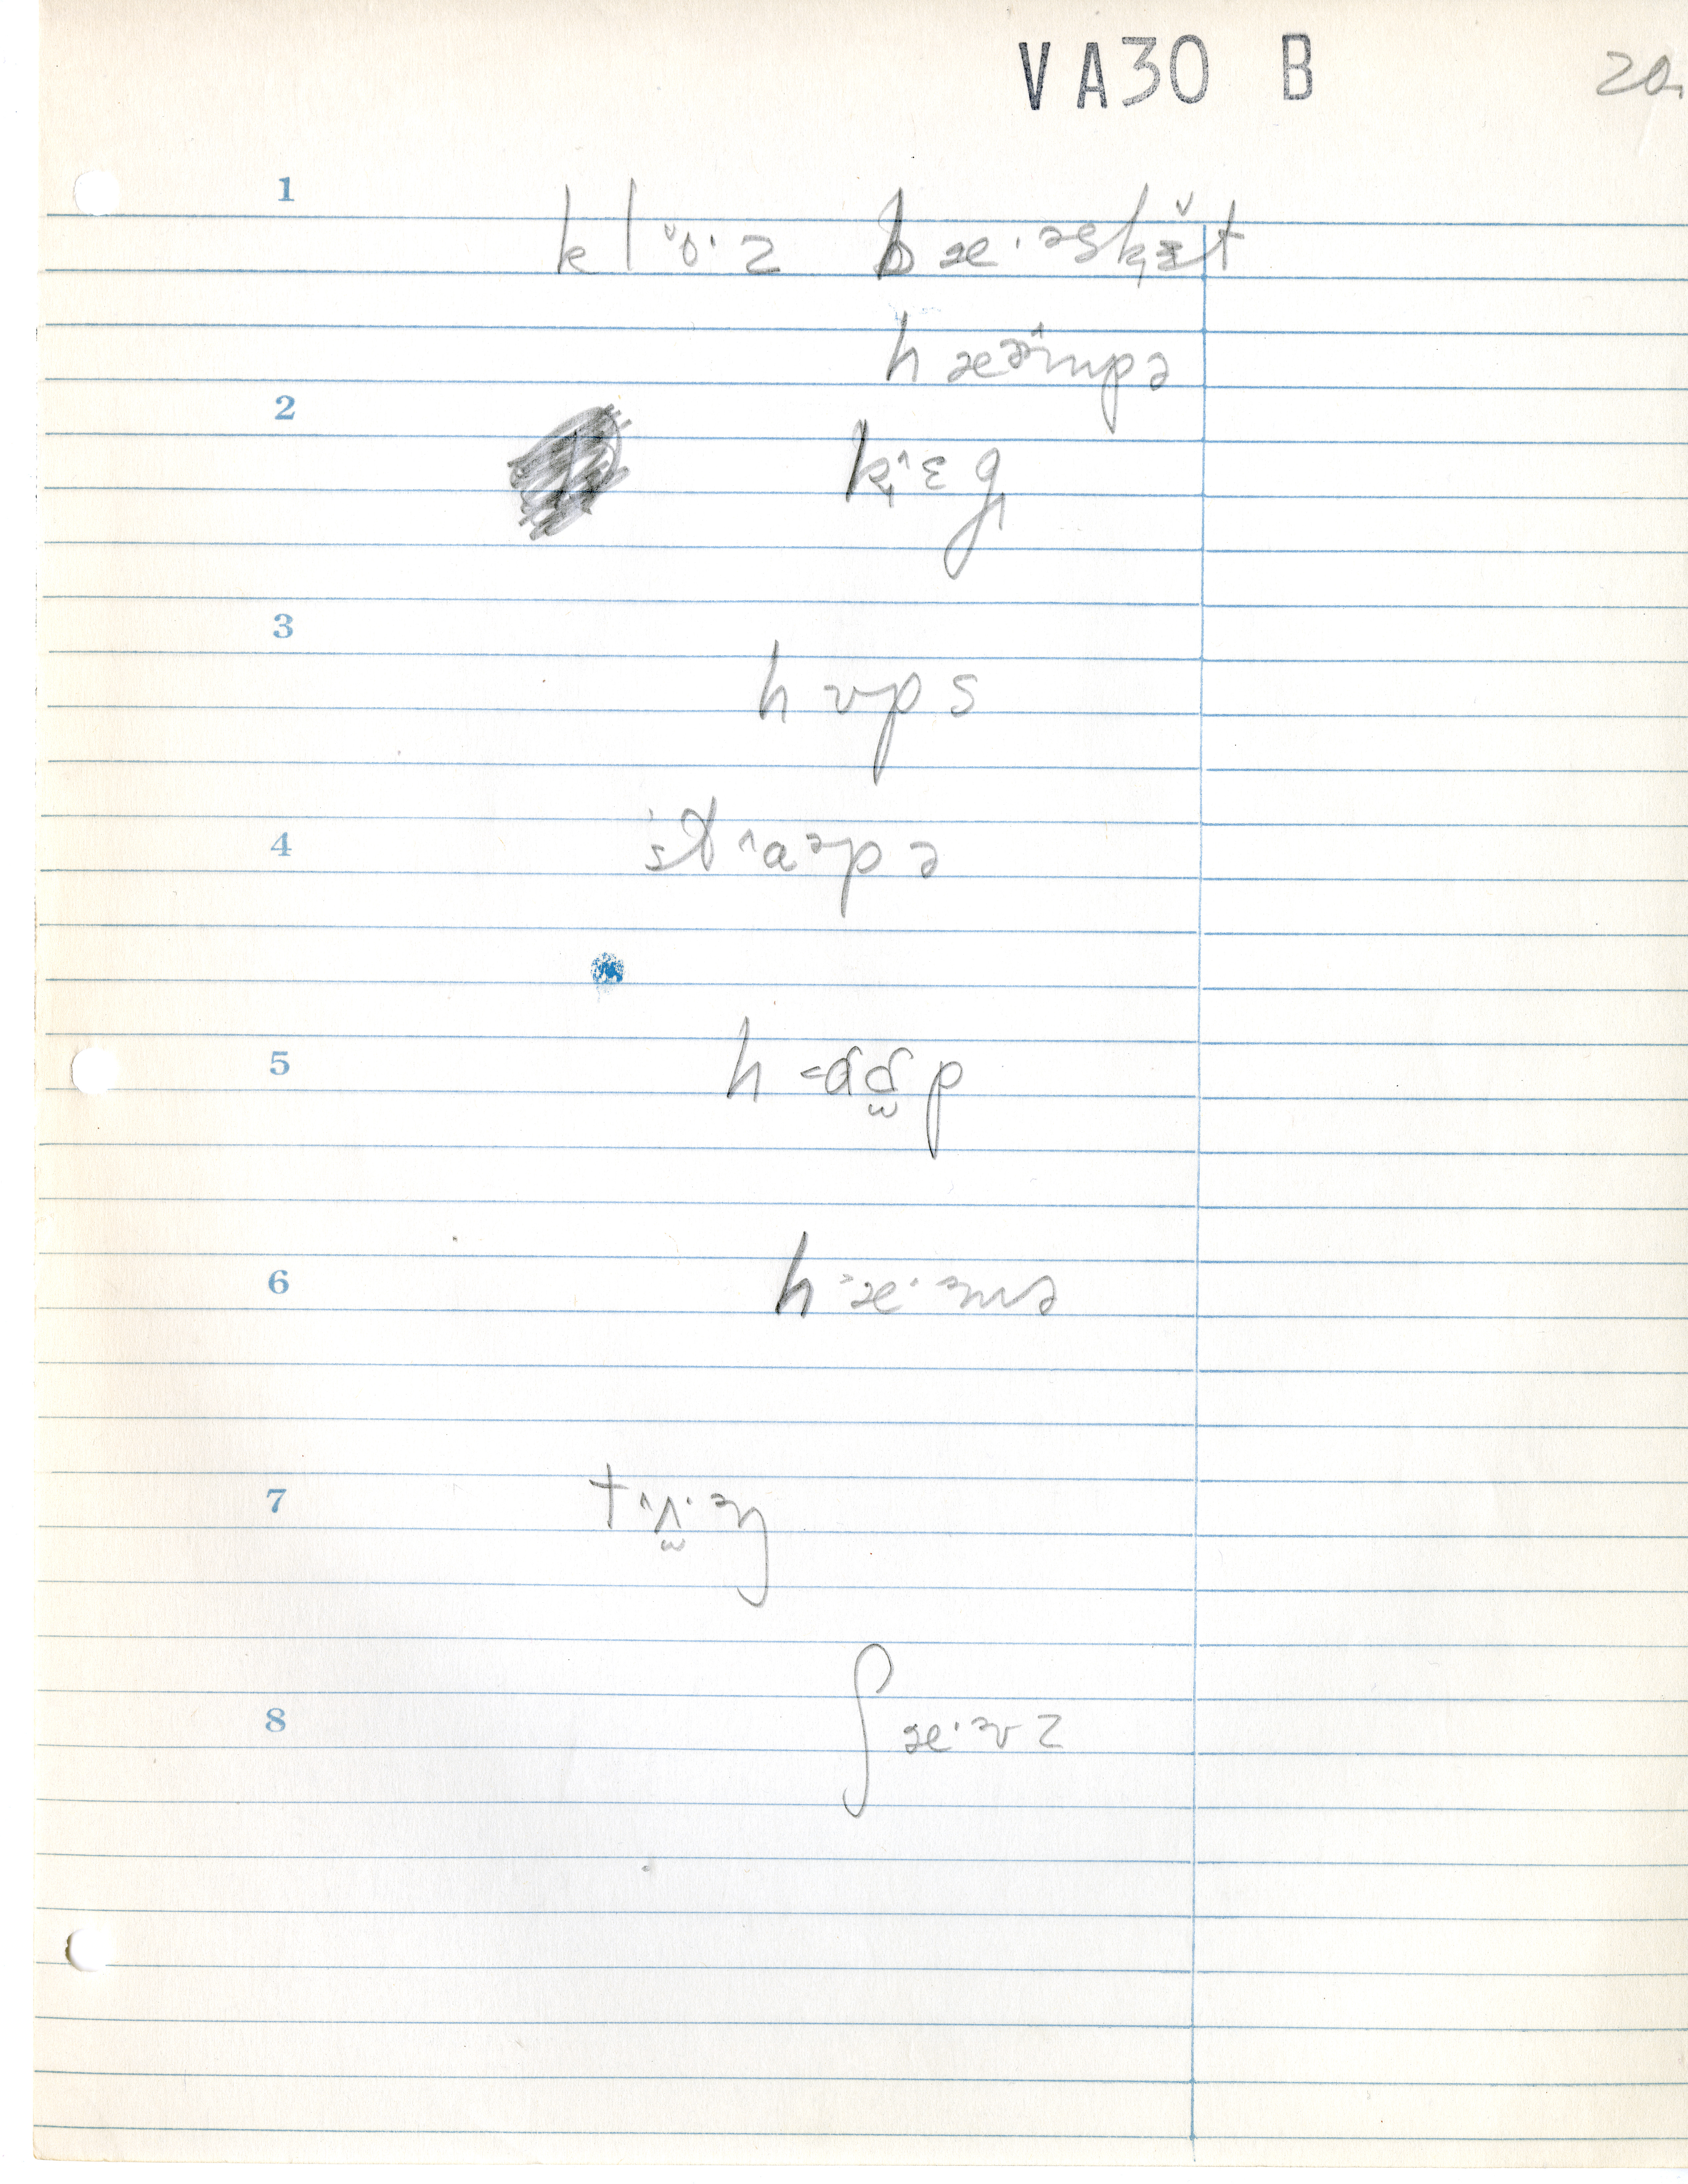 VA30 B 20.
1 klˇo·z bæ·əsk̟ɪ̌t
hæə̃mpə
2 k̟˄ɛg̟
3 hʋps
4 st˄a˅əpə
5 h
6 hæ·əmə
7 tʌ·əŋ
8 ʃæ·əvz